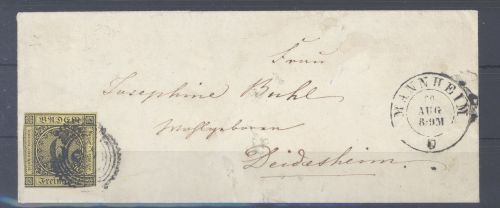 Frau
Josephine Buhl
Wohlgeboren
Deidesheim.
MANNHEIM
AUG
8-9M
BADEN
Freim